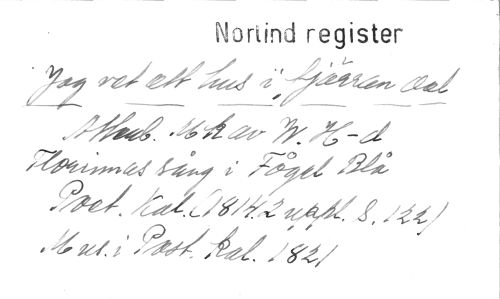 Norlind register
Jag vet ett hus i fjärran dal
Atterb. Mk av W. H-d
Florinnas sång i Fågel Blå
Poet. Kal. (1814. 2 uppl. S. 122)
Mus. i Poet. Kal. 1821